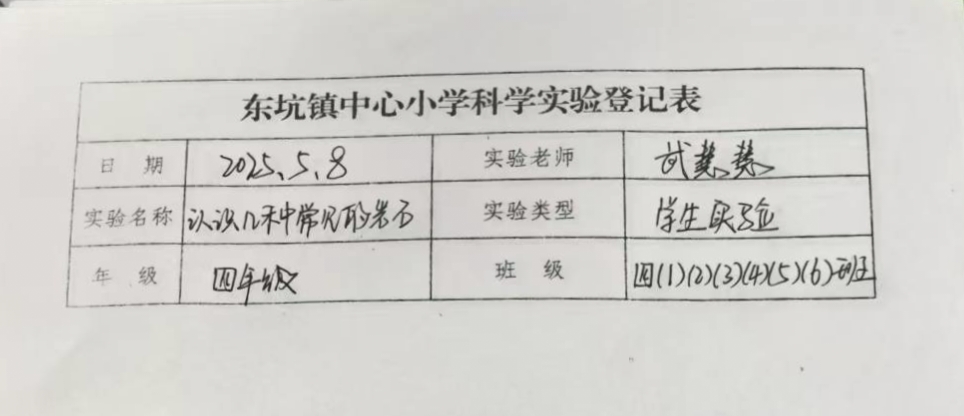 东坑镇中心小学科学实验登记表
日 期 2025、5、8 实验老师 武慧慧
实验名称 认识几种常见的岩石 实验类型 学生实验
年 级 四年级 班 级 四(1)(2)(3)(4)(5)(6)班